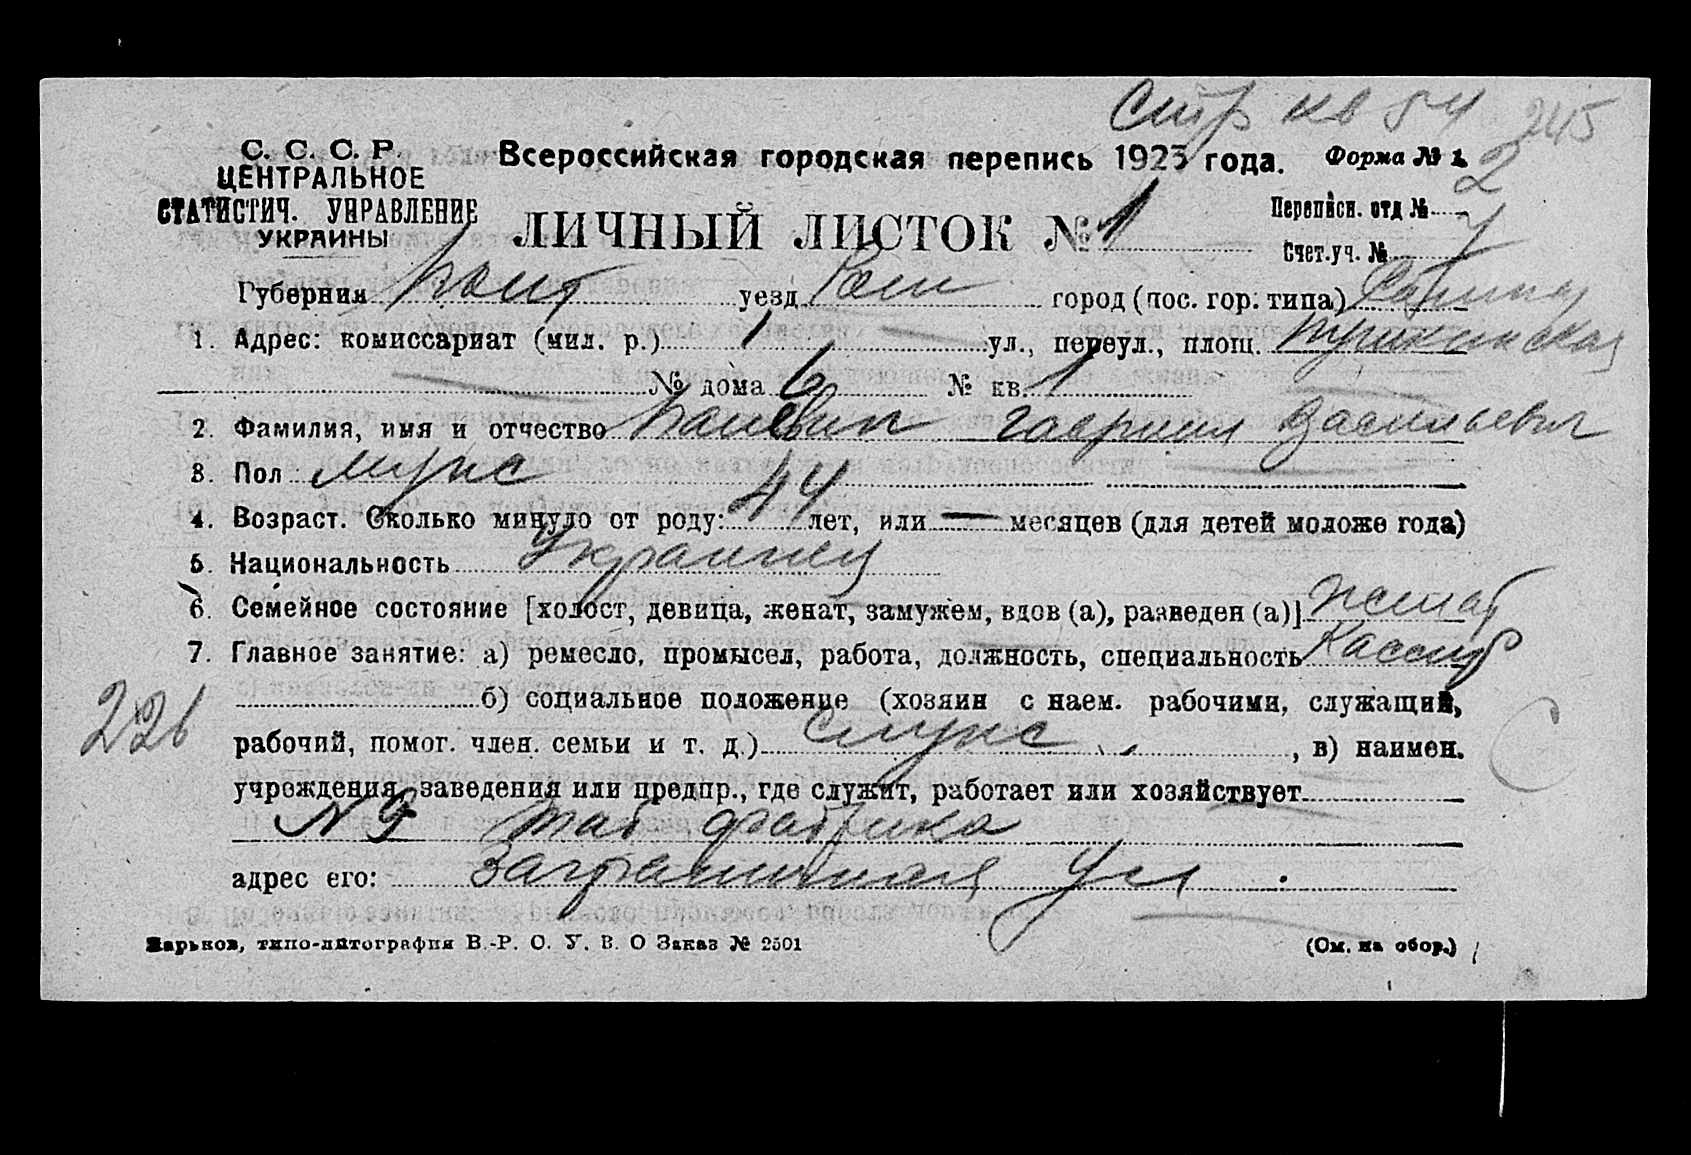 Стр кв 54 245
С. С. С. Р.
ЦЕНТРАЛЬНОЕ
СТАТИСТИЧ. УПРАВЛЕНИЕ
УКРАИНЫ
Всероссийская городская перепись 1923 года. Форма № 1.
ЛИЧНЫЙ ЛИСТОК № 1
Переписн. отд № 2
Счет.уч. № 7
Губерния Полт уезд Ром город (пос. гор. типа)
1. Адрес: комиссариат (мил. р.) 1 ул., переул., площ. Пушкинская
№ дома 6 № кв. 1
2. Фамилия, имя и отчество Гавриил Васильевич
3. Пол мужс
4. Возраст. Сколько минуло от роду: 44 лет, или — месяцев (для детей моложе года)
5. Национальность Украинец
6. Семейное состояние [холост, девица, женат, замужем, вдов (а), разведен (а)] женат
7. Главное занятие: а) ремесло, промысел, работа, должность, специальность Кассир
б) социальное положение (хозяин с наем. рабочими, служащий,
226
рабочий, помог. член. семьи и т. д.) служс , в) наимен.
С
учреждения, заведения или предпр., где служит, работает или хозяйствует
N 9 таб фабрика
адрес его: ул
Харьков, типо-литография В.-Р. О. У. В. О Заказ № 2501
(См. на обор.)